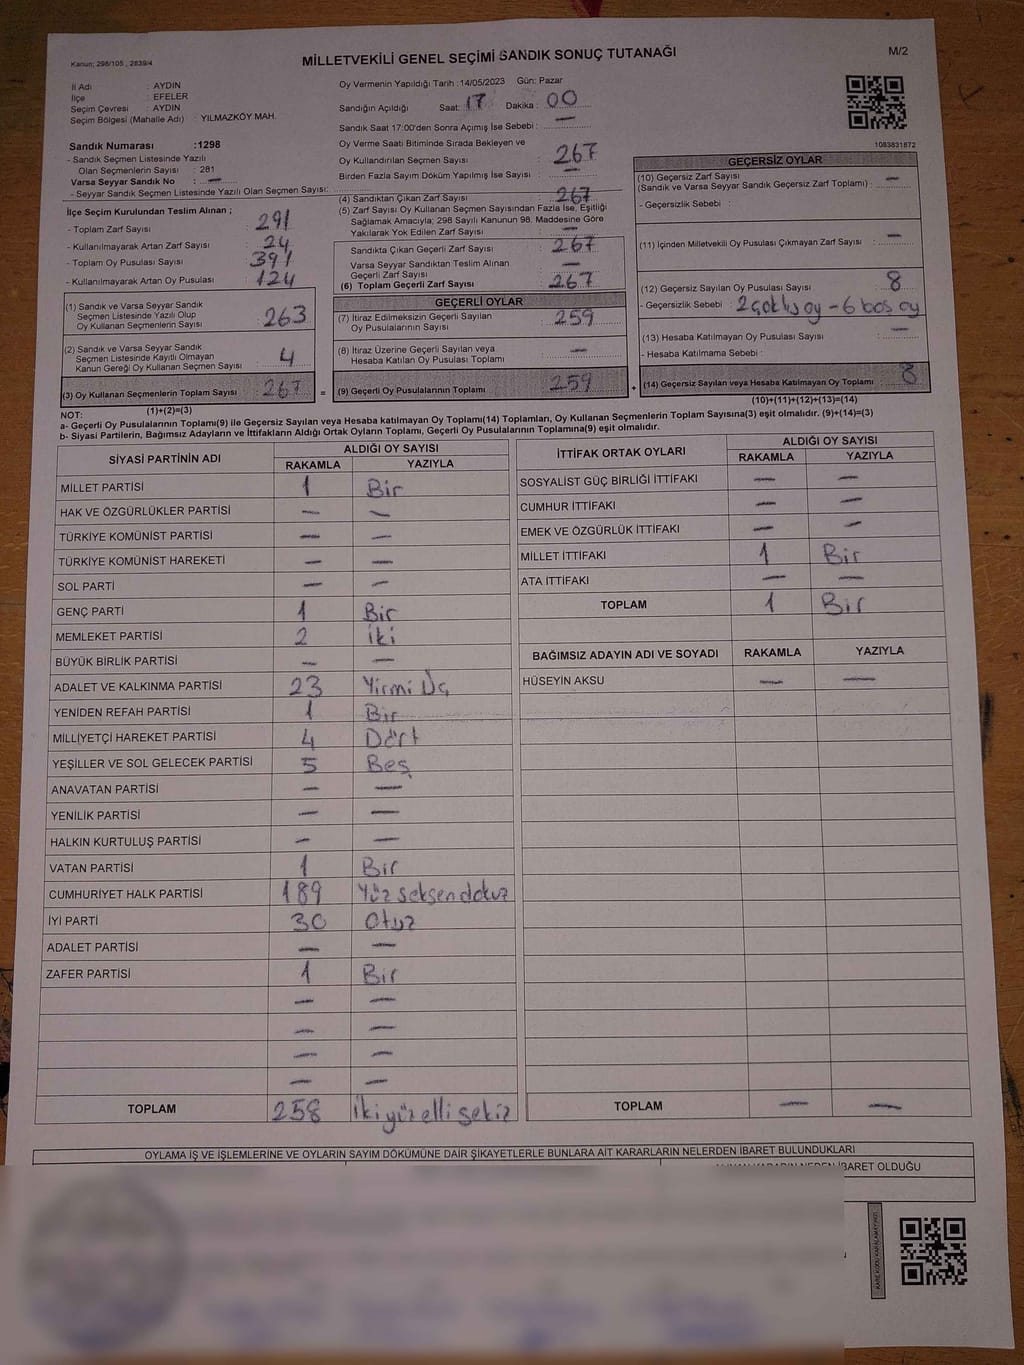 Kanun; 298/105 , 2839/4
MİLLETVEKİLİ GENEL SEÇİMİ SANDIK SONUÇ TUTANAĞI
M/2
İl Adı : AYDIN
İlçe : EFELER
Seçim Çevresi : AYDIN
Seçim Bölgesi (Mahalle Adı) : YILMAZKÖY MAH.
Sandık Numarası :1298
- Sandık Seçmen Listesinde Yazılı
Olan Seçmenlerin Sayısı : 281
Varsa Seyyar Sandık No : —
- Seyyar Sandık Seçmen Listesinde Yazılı Olan Seçmen Sayısı:
Oy Vermenin Yapıldığı Tarih :14/05/2023 Gün: Pazar
Sandığın Açıldığı Saat: 17 Dakika : 00
Sandık Saat 17:00'den Sonra Açılmış İse Sebebi : —
Oy Verme Saati Bitiminde Sırada Bekleyen ve
Oy Kullandırılan Seçmen Sayısı : 267
Birden Fazla Sayım Döküm Yapılmış İse Sayısı : —
1083831872
İlçe Seçim Kurulundan Teslim Alınan ;
- Toplam Zarf Sayısı : 291
- Kullanılmayarak Artan Zarf Sayısı : 24
- Toplam Oy Pusulası Sayısı : 391
- Kullanılmayarak Artan Oy Pusulası : 124
(1) Sandık ve Varsa Seyyar Sandık
Seçmen Listesinde Yazılı Olup
Oy Kullanan Seçmenlerin Sayısı : 263
(2) Sandık ve Varsa Seyyar Sandık
Seçmen Listesinde Kayıtlı Olmayan
Kanun Gereği Oy Kullanan Seçmen Sayısı : 4
(3) Oy Kullanan Seçmenlerin Toplam Sayısı : 267 =
(1)+(2)=(3)
(4) Sandıktan Çıkan Zarf Sayısı : 267
(5) Zarf Sayısı Oy Kullanan Seçmen Sayısından Fazla İse, Eşitliği
Sağlamak Amacıyla; 298 Sayılı Kanunun 98. Maddesine Göre
Yakılarak Yok Edilen Zarf Sayısı : —
Sandıkta Çıkan Geçerli Zarf Sayısı : 267
Varsa Seyyar Sandıktan Teslim Alınan
Geçerli Zarf Sayısı : —
(6) Toplam Geçerli Zarf Sayısı : 267
GEÇERLİ OYLAR
(7) İtiraz Edilmeksizin Geçerli Sayılan
Oy Pusulalarının Sayısı : 259
(8) İtiraz Üzerine Geçerli Sayılan veya
Hesaba Katılan Oy Pusulası Toplamı : —
(9) Geçerli Oy Pusulalarının Toplamı : 259 +
GEÇERSİZ OYLAR
(10) Geçersiz Zarf Sayısı
(Sandık ve Varsa Seyyar Sandık Geçersiz Zarf Toplamı) : —
- Geçersizlik Sebebi :
(11) İçinden Milletvekili Oy Pusulası Çıkmayan Zarf Sayısı : —
(12) Geçersiz Sayılan Oy Pusulası Sayısı : 8
- Geçersizlik Sebebi : 2 çoklu oy - 6 boş oy
(13) Hesaba Katılmayan Oy Pusulası Sayısı : —
- Hesaba Katılmama Sebebi :
(14) Geçersiz Sayılan veya Hesaba Katılmayan Oy Toplamı : 8
(10)+(11)+(12)+(13)=(14)
NOT:
a- Geçerli Oy Pusulalarının Toplamı(9) ile Geçersiz Sayılan veya Hesaba katılmayan Oy Toplamı(14) Toplamları, Oy Kullanan Seçmenlerin Toplam Sayısına(3) eşit olmalıdır. (9)+(14)=(3)
b- Siyasi Partilerin, Bağımsız Adayların ve İttifakların Aldığı Ortak Oyların Toplamı, Geçerli Oy Pusulalarının Toplamına(9) eşit olmalıdır.
SİYASİ PARTİNİN ADI ALDIĞI OY SAYISI
RAKAMLA YAZIYLA
MİLLET PARTİSİ 1 Bir
HAK VE ÖZGÜRLÜKLER PARTİSİ — —
TÜRKİYE KOMÜNİST PARTİSİ — —
TÜRKİYE KOMÜNİST HAREKETİ — —
SOL PARTİ — —
GENÇ PARTİ 1 Bir
MEMLEKET PARTİSİ 2 iki
BÜYÜK BİRLİK PARTİSİ — —
ADALET VE KALKINMA PARTİSİ 23 Yirmi Üç
YENİDEN REFAH PARTİSİ 1 Bir
MİLLİYETÇİ HAREKET PARTİSİ 4 Dört
YEŞİLLER VE SOL GELECEK PARTİSİ 5 Beş
ANAVATAN PARTİSİ — —
YENİLİK PARTİSİ — —
HALKIN KURTULUŞ PARTİSİ — —
VATAN PARTİSİ 1 Bir
CUMHURİYET HALK PARTİSİ 189 Yüz seksen dokuz
İYİ PARTİ 30 Otuz
ADALET PARTİSİ — —
ZAFER PARTİSİ 1 Bir
— —
— —
— —
— —
TOPLAM 258 İki yüz elli sekiz
İTTİFAK ORTAK OYLARI ALDIĞI OY SAYISI
RAKAMLA YAZIYLA
SOSYALİST GÜÇ BİRLİĞİ İTTİFAKI — —
CUMHUR İTTİFAKI — —
EMEK VE ÖZGÜRLÜK İTTİFAKI — —
MİLLET İTTİFAKI 1 Bir
ATA İTTİFAKI — —
TOPLAM 1 Bir
BAĞIMSIZ ADAYIN ADI VE SOYADI RAKAMLA YAZIYLA
HÜSEYİN AKSU — —
TOPLAM — —
OYLAMA İŞ VE İŞLEMLERİNE VE OYLARIN SAYIM DÖKÜMÜNE DAİR ŞİKAYETLERLE BUNLARA AİT KARARLARIN NELERDEN İBARET BULUNDUKLARI
İBARET OLDUĞU
KARE KODU KARALAMAYINIZ!